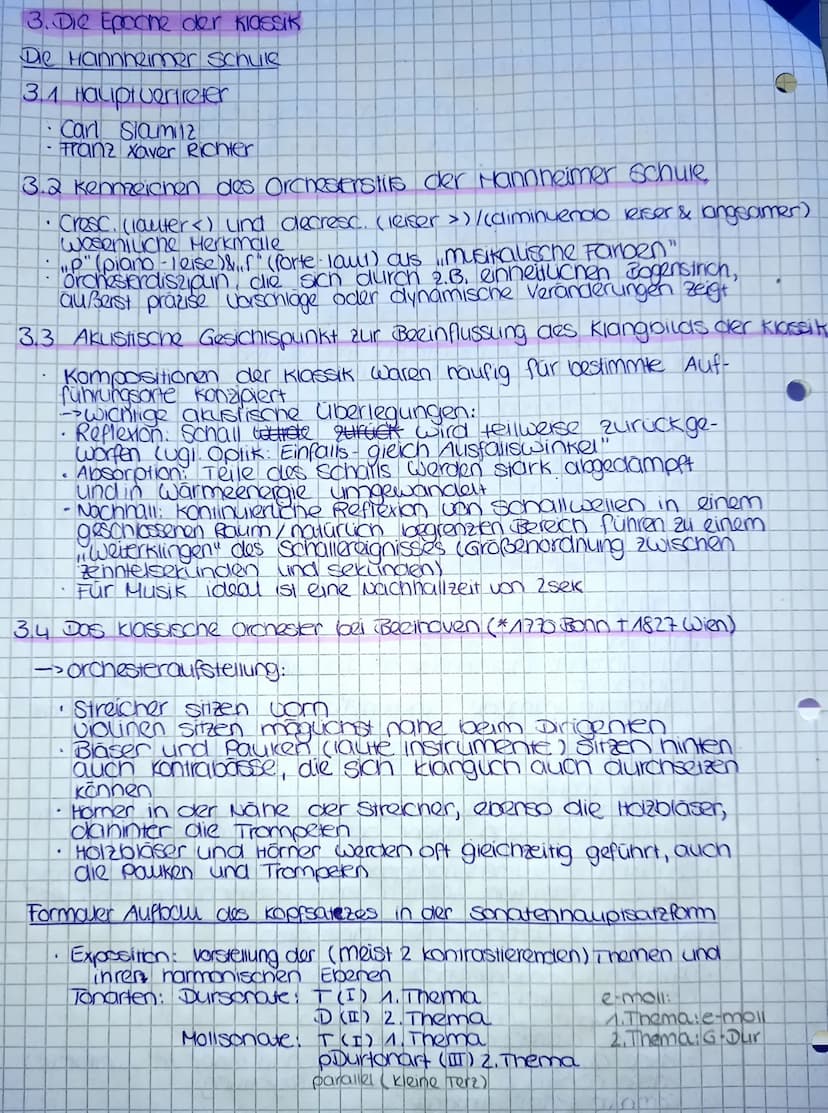 3. Die Epoche der Klassik
Die Mannheimer Schule
3.1 Hauptvertreter
· Carl Stamitz
· Franz Xaver Richter
3.2 Kennzeichen des Orchesterstils der Mannheimer Schule
· Cresc. (lauter <) und decresc. (leiser >)/(diminuendo leiser & langsamer)
wesentliche Merkmale
· „p" (piano - leise) & „f" (forte - laut) als „musikalische Farben"
· Orchesterdisziplin, die sich durch z.B. einheitlichen Bogenstrich,
äußerst präzise Vorschläge oder dynamische Veränderungen zeigt
3.3 Akustische Gesichtspunkt zur Beeinflussung des Klangbilds der Klassik
· Kompositionen der Klassik waren häufig für bestimmte Auf-
führungsorte konzipiert
-> wichtige akustische Überlegungen:
· Reflexion: Schall zurück wird teilweise zurückge-
worfen (vgl. Optik: Einfalls- gleich Ausfallswinkel"
· Absorption: Teile des Schalls werden stark abgedämpft
und in Wärmeenergie umgewandelt
- Nachhall: kontinuierliche Reflexion von Schallwellen in einem
geschlossenen Raum / natürlich begrenzten Bereich führen zu einem
„Weiterklingen" des Schallereignisses (Größenordnung zwischen
Zehntelsekunden und Sekunden)
· Für Musik ideal ist eine Nachhallzeit von 2sek
3.4 Das klassische Orchester bei Beethoven (*1770 Bonn † 1827 Wien)
-> Orchesteraufstellung:
· Streicher sitzen vorn
Violinen sitzen möglichst nahe beim Dirigenten
· Bläser und Pauken (laute Instrumente) sitzen hinten
auch Kontrabässe, die sich klanglich auch durchsetzen
können
· Hörner in der Nähe der Streicher, ebenso die Holzbläser,
dahinter die Trompeten
· Holzbläser und Hörner werden oft gleichzeitig geführt, auch
die Pauken und Trompeten
Formaler Aufbau des Kopfsatzes in der Sonatenhauptsatzform
· Exposition: Vorstellung der (meist 2 kontrastierenden) Themen und
ihren harmonischen Ebenen
Tonarten: Dursonate: T (I) 1. Thema
e-moll:
D (II) 2. Thema
1. Thema: e-moll
Mollsonate: T (I) 1. Thema
2. Thema: G-Dur
pDurtonart (III) 2. Thema
parallel (kleine Terz)